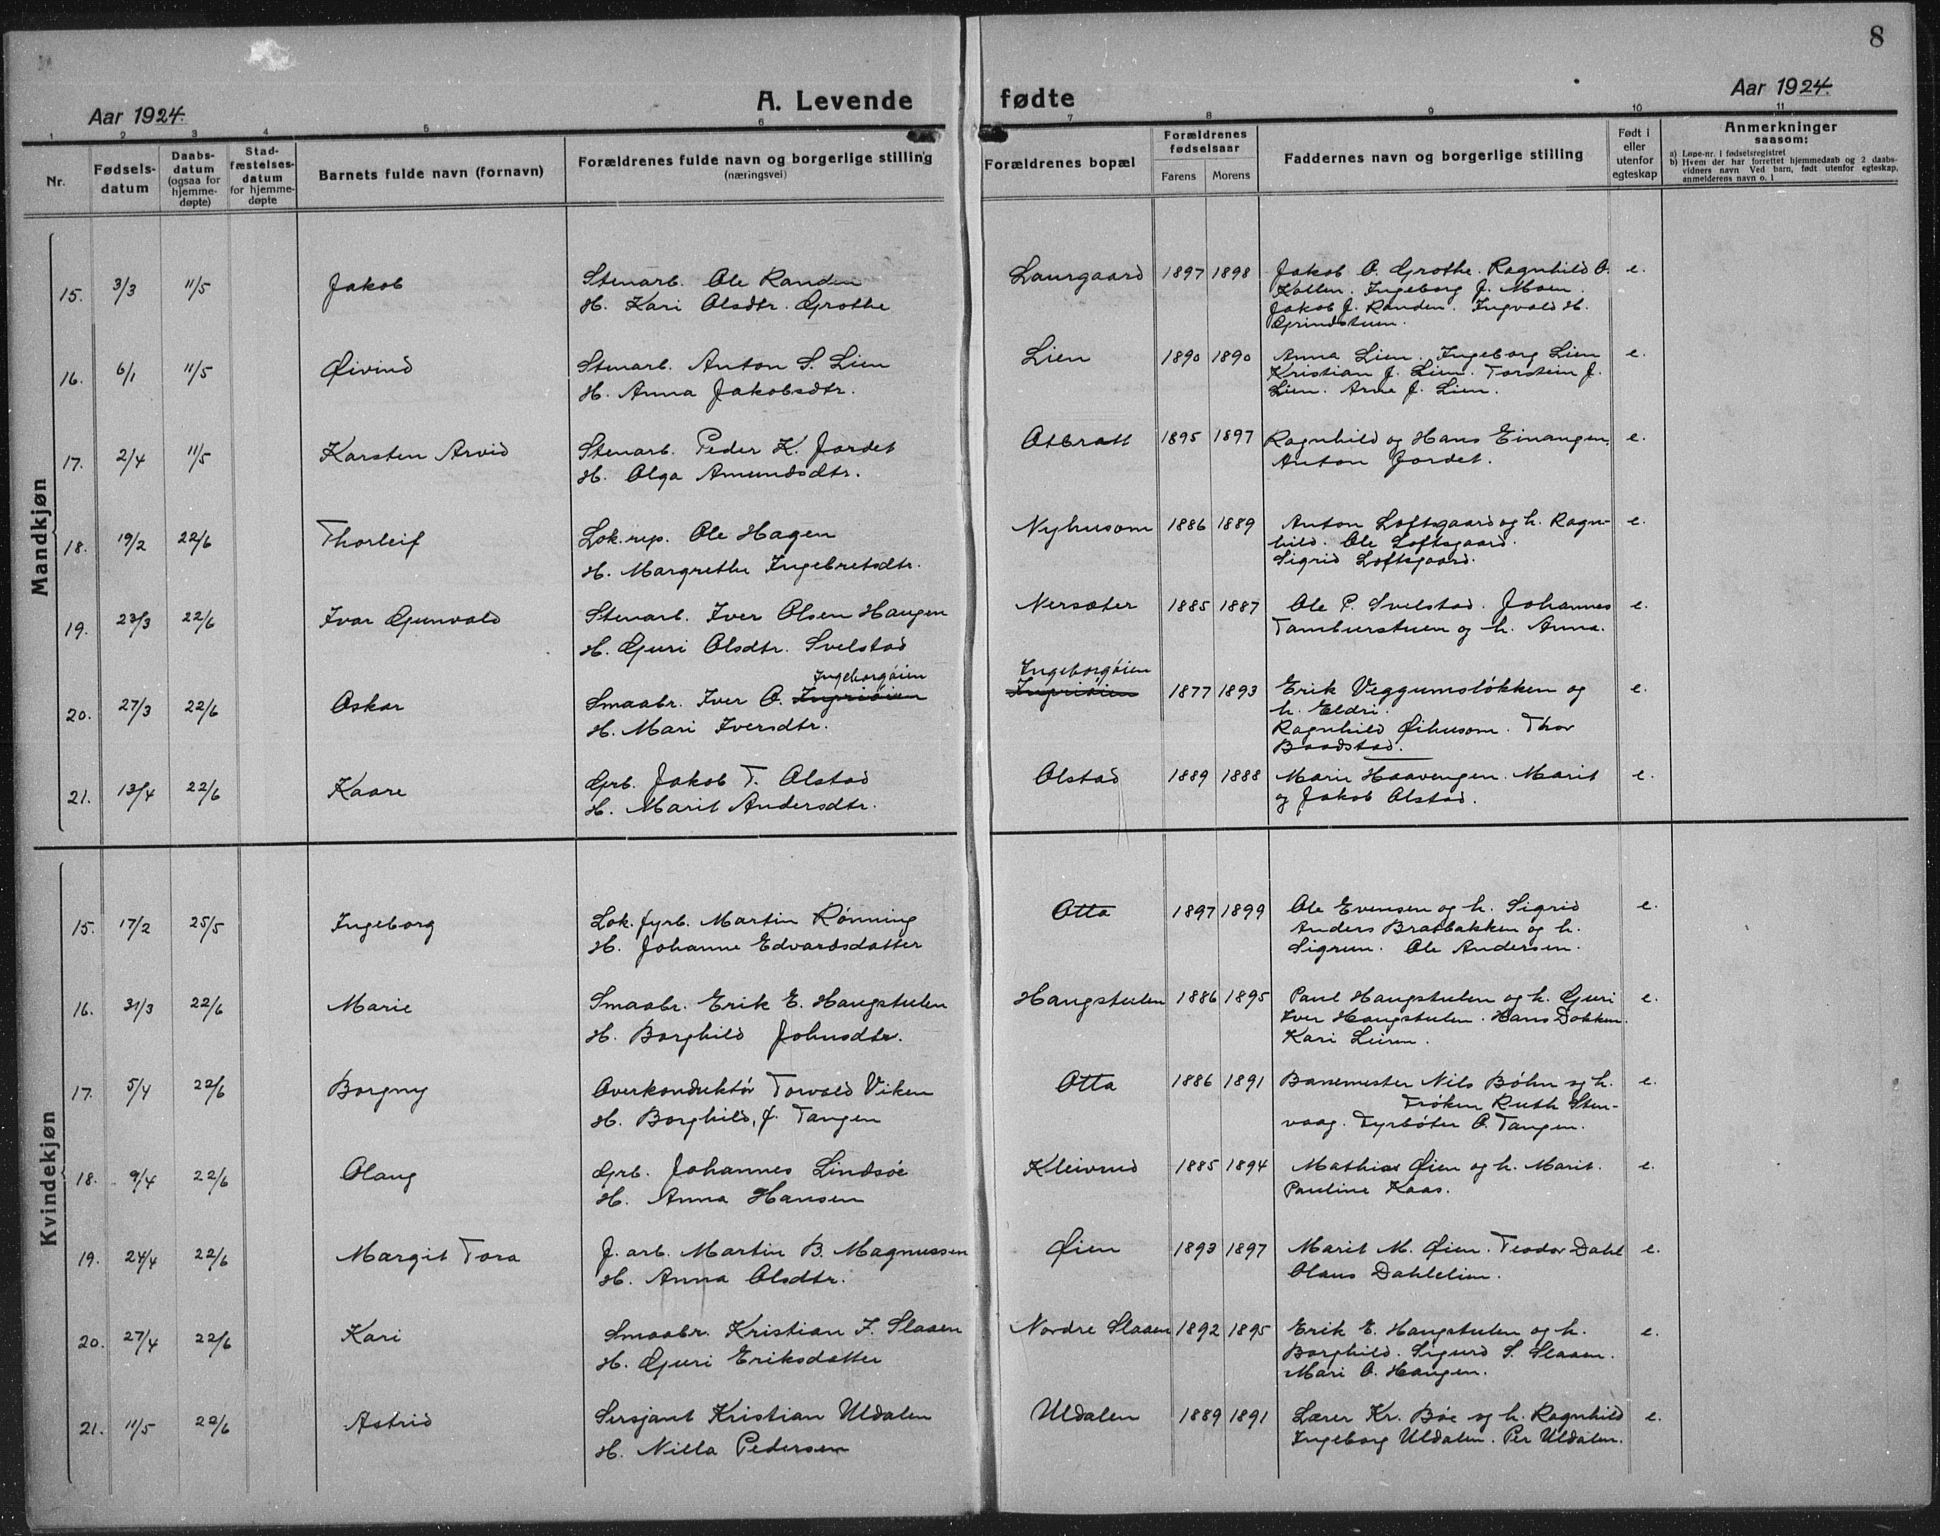 8
Aar 1924.
A. Levende fødte
Aar 1924.
1 2 3 4 5 6 7 8 9 10 11
Nr.
Fødsels-
datum
Daabs-
datum
(ogsaa for
hjemme-
døpte)
Stad-
fæstelses-
datum
for hjemme-
døpte
Barnets fulde navn (fornavn)
Forældrenes fulde navn og borgerlige stilling
(næringsvei)
Forældrenes bopæl
Forældrenes
fødselsaar
Farens Morens
Faddernes navn og borgerlige stilling
Født i
eller
utenfor
egteskap
Anmerkninger
saasom:
a) Løpe-nr. i fødselsregistret
b) Hvem der har forrettet hjemmedaab og 2 daabs-
vidners navn Ved barn, født utenfor egteskap,
anmelderens navn o. l
Mandkjøn
15. 3/3 11/5 Jakob
Stenarb. Ole Randen
H. Kari Olsdtr. Grothe
Laurgaard 1897 1898
Jakob O. Grothe. Ragnhild O.
Kollen. Ingeborg J. Moen.
Jakob J. Randen. Ingvald H.
Grindstuen.
e.
16. 6/1 11/5 Øivind
Stenarb. Anton S. Lien
H. Anna Jakobsdtr.
Lien 1890 1890
Anna Lien. Ingeborg Lien
Kristian J. Lien. Torstein J.
Lien. Arne J. Lien.
e.
17. 2/4 11/5 Karsten Arvid
Stenarb. Peder K. Jordet
H. Olga Amundsdtr.
Otbratt 1895 1897
Ragnhild og Hans Einangen.
Anton Jordet.
e.
18. 19/2 22/6 Thorleif
Lok.rep. Ole Hagen
H. Margrethe Ingebretsdtr.
Nyhusom 1886 1889
Anton Loftsgaard og h. Ragn-
hild. Ole Loftsgaard.
Sigrid Loftsgaard.
e.
19. 23/3 22/6 Ivar Gunvald
Stenarb. Iver Olsen Haugen
H. Guri Olsdtr. Svelstad
Nersæter 1885 1887
Ole P. Svelstad. Johannes
Tamburstuen og h. Anna.
e.
20. 27/3 22/6 Oskar
Ingeborgøien
Smaabr. Iver O. Ingriøien
H. Mari Iversdtr.
Ingeborgøien
Ingriøien 1877 1893
Erik Veggumsløkken og
h. Eldri.
Ragnhild Øihusom. Thor
Baadstad.
e.
21. 13/4 22/6 Kaare
Grb. Jakob T. Olstad
H. Marit Andersdtr.
Olstad 1889 1888
Marie Haavengen. Marit
og Jakob Olstad.
e.
Kvindekjøn
15. 17/2 25/5 Ingeborg
Lok. fyrb. Martin Rønning
H. Johanne Edvardsdatter
Otta 1897 1899
Ole Evensen og h. Sigrid
Anders Bratbakken og h.
Sigrun. Ole Andersen.
e.
16. 31/3 22/6 Marie
Smaabr. Erik E. Haugstulen
H. Borghild Johnsdtr.
Haugstulen 1886 1895
Paul Haugstulen og h. Guri
Iver Haugstulen. Hans Dokken.
Kari Leiren.
e.
17. 5/4 22/6 Borgny
Overkonduktør Torvald Viken
H. Borghild, J. Tangen
Otta 1886 1891
Banemester Nils Bøhn og h.
Frøken Ruth Sten-
vaag. Fyrbøter O. Tangen.
e.
18. 9/4 22/6 Olaug
Grb. Johannes Lindsøe
H. Anna Hansen
Kleivrud 1885 1894
Mathias Øien og h. Marit.
Pauline Kaas.
e.
19. 24/4 22/6 Margit Tora
J. arb. Martin B. Magnussen
H. Anna Olsdtr.
Øien 1893 1897
Marit M. Øien. Teodor Dahl
Olaus Dahlelien.
e.
20. 27/4 22/6 Kari
Smaabr. Kristian F. Slaaen
H. Guri Eriksdatter
Nordre Slaaen 1892 1895
Erik E. Haugstulen og h.
Borghild. Sigurd S. Slaaen.
Mari O. Haugen.
e.
21. 11/5 22/6 Astrid
Sersjant Kristian Uldalen
H. Nilla Pedersen
Uldalen 1889 1891
Lærer Kr. Bøe og h. Ragnhild
Ingeborg Uldalen. Per Uldalen.
e.